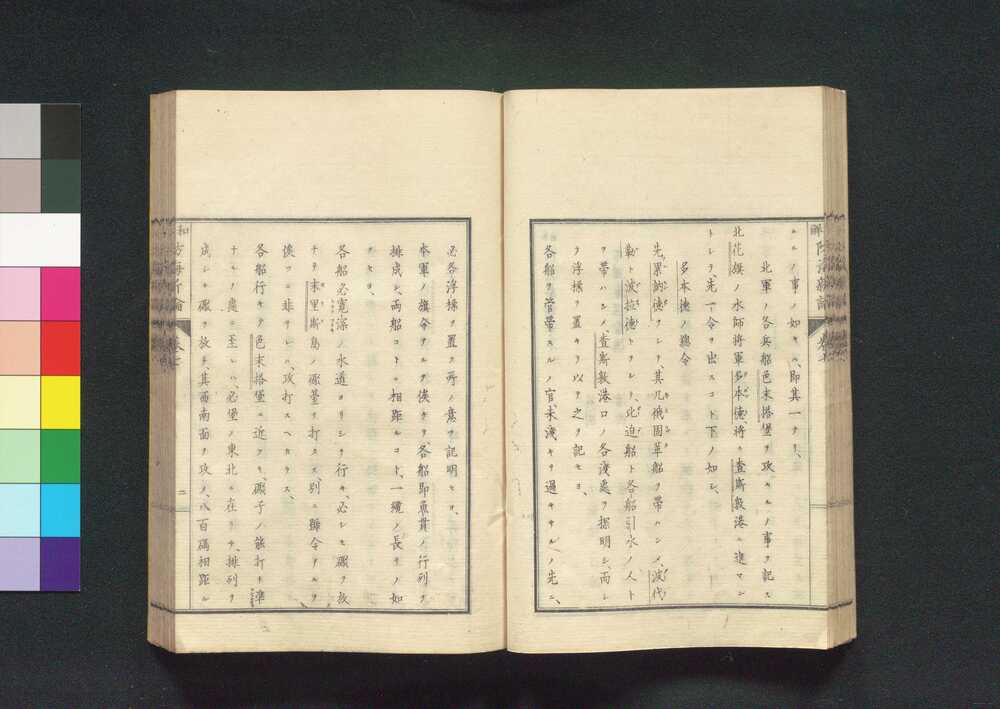 ルルノ事ノ如キハ、即其一ナリ、
北軍ノ各兵船色末搭堡ヲ攻ムルノ事ヲ記ス
北花旗ノ水師將軍多本德、將ニ査斯敦港ニ進マン
トシテ、先一令ヲ出スコト下ノ如シ、
多本德ノ總令
先累訥德ヲシテ、其几俄固革船ヲ帶ハシメ、波代、
勒ト波拉德トヲシテ、北迫船ト各船引水ノ人ト
ヲ帶ハシメ、査斯敦港口ノ各淺處ヲ探明シ、而シ
テ浮標ヲ置キテ以テ之ヲ記セヨ、
各船ヲ管帶スルノ官、未淺キヲ過キサルノ先ニ、
必各浮標ヲ置ク所ノ意ヲ記明セヨ、
本軍ノ旗令アルヲ俟テ、各船即魚貫ノ行列ヲ
排成シ、兩船コトニ相距ルコト、一纜ノ長サノ如
クセヨ、
各船必寛深ノ水道ヨリシテ行キ、必シモ礮ヲ放
チテ末里斯島ノ礮臺ヲ打タス、別ニ號令アルヲ
俟ツニ非サレハ、攻打スヘカラス、
各船行キテ色末搭堡ニ近ツキ、礮子ノ能打チ準
ナルノ處ニ至レハ、必堡ノ東北ニ在リテ、排列ヲ
成シテ礮ヲ放チ、其西南面ヲ攻メ、八百碼相距ル
卷七
二